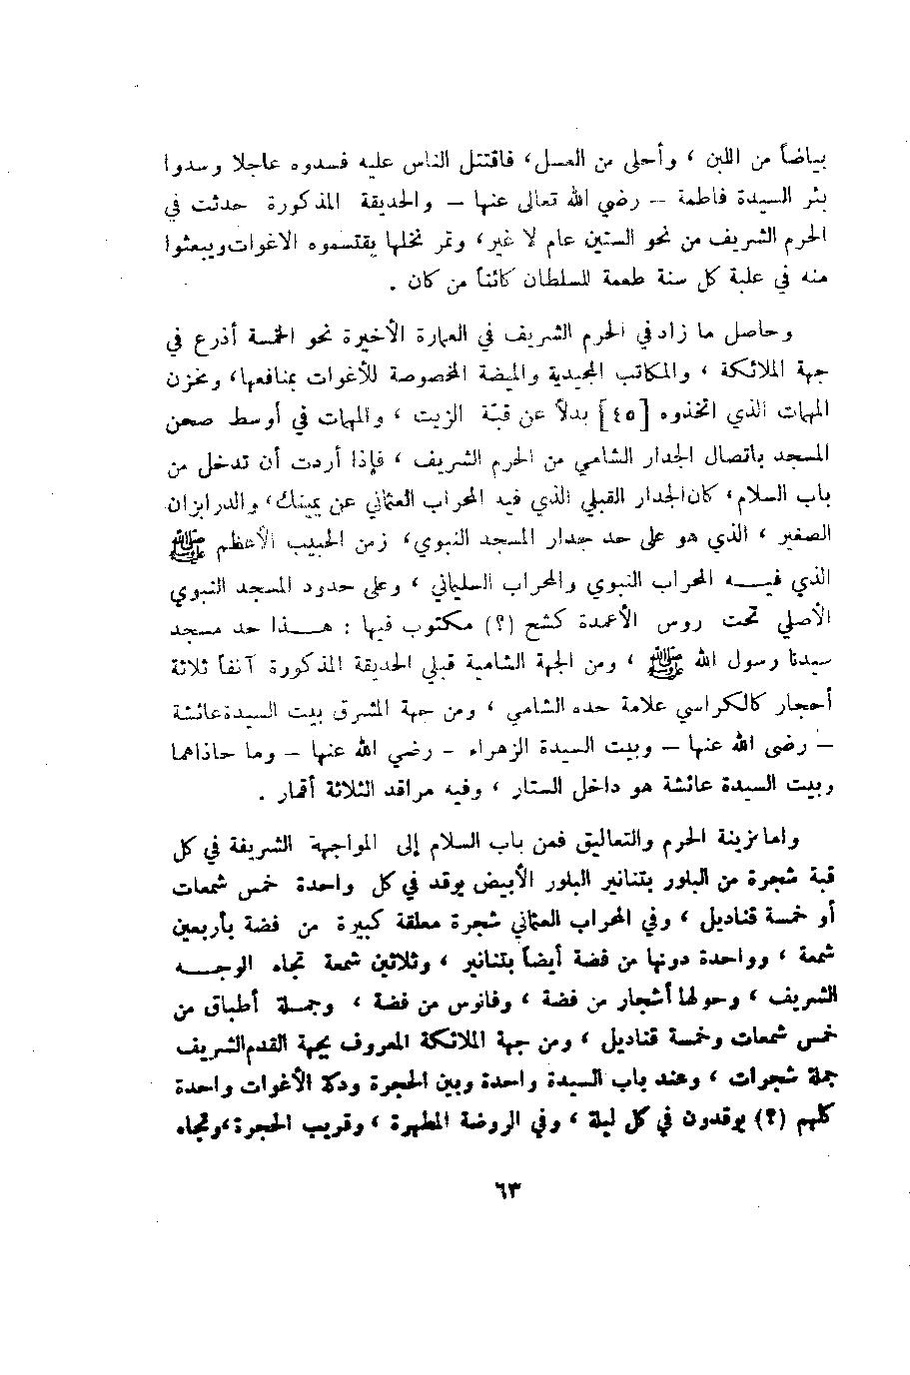 بياضاً من اللبن ، وأحلى من العسل، فاقتتل الناس عليه فسدوه عاجلا وسدوا
بئر السيدة فاطمة -- رضي الله تعالى عنها - والحديقة المذكورة حدثت في
الحرم الشريف من نحو الستين عام لا غير، وتمر نخلها يقتسموه الاغوات ويبعثوا
منه في علبة كل سنة طعمة للسلطان كائناً من كان .
وحاصل ما زاد في الحرم الشريف في العمارة الأخيرة نحو الخمسة أذرع في
جهة الملائكة ، والمكاتب المجيدية والميضة المخصوصة للأغوات بمنافعها، ومخزن
المهمات الذي اتخذوه [٤٥] بدلاً عن قبّة الزيت ، والمهمات في أوسط صحن
المسجد باتصال الجدار الشامي من الحرم الشريف ، فإذا أردت أن تدخل من
باب السلام، كان الجدار القبلي الذي فيه المحراب العثماني عن يمينك، والدرابزان
الصغير ، الذي هو على حد جدار المسجد النبوي، زمن الحبيب الأعظم ﷺ
الذي فيـــه المحراب النبوي والمحراب السليماني ، وعلى حدود المسجد النبوي
الأصلي تحت روس الأعمدة كشح (؟) مكتوب فيها : هـــذا حد مسجد
سيدنا رسول الله ﷺ ، ومن الجهة الشامية قبلي الحديقة المذكورة آنفاً ثلاثة
أحجار كالكراسي علامة حده الشامي ، ومن جهة المشرق بيت السيدة عائشة
- رضى الله عنها - وبيت السيدة الزهراء - رضي الله عنها - وما حاذاهما
وبيت السيدة عائشة هو داخل الستار ، وفيه مراقد الثلاثة أقمار .
واما زينة الحرم والتعاليق فمن باب السلام إلى المواجهة الشريفة في كل
قبة شجرة من البلور بتنانير البلور الأبيض يوقد في كل واحدة خمس شمعات
أو خمسة قناديل ، وفي المحراب العثماني شجرة معلقة كبيرة من فضة بأربعين
شمعة ، وواحدة دونها من فضة أيضاً بتنانير ، وثلاثين شمعة تجاه الوجـــه
الشريف ، وحولها أشجار من فضة ، وفانوس من فضة ، وجمـلة أطباق من
خمس شمعات وخمسة قناديل ، ومن جهة الملائكة المعروف بجهة القدم الشريف
جملة شجرات ، وعند باب السيدة واحدة وبين الحجرة ودكة الأغوات واحدة
كلهم (؟) يوقدون في كل ليلة ، وفي الروضة المطهرة ، وقريب الحجرة، وتجاه
٦٣